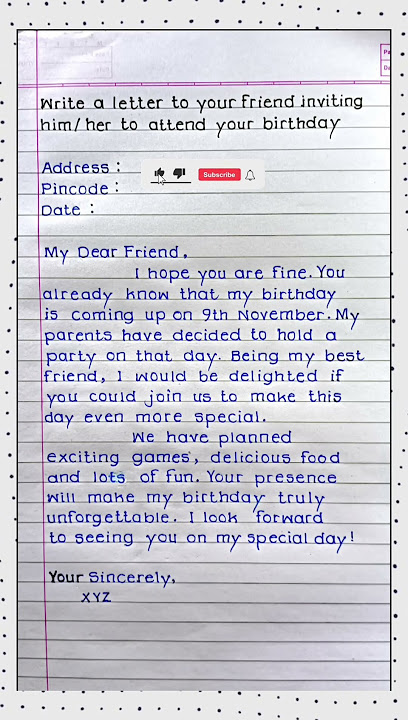 Write a letter to your friend inviting
him/her to attend your birthday
Address :
Pincode :
Subscribe
Date :
My Dear Friend,
I hope you are fine. You
already know that my birthday
is coming up on 9th November. My
parents have decided to hold a
party on that day. Being my best
friend, I would be delighted if
you could join us to make this
day even more special.
We have planned
exciting games, delicious food
and lots of fun. Your presence
will make my birthday truly
unforgettable. I look forward
to seeing you on my special day!
Your Sincerely,
XYZ